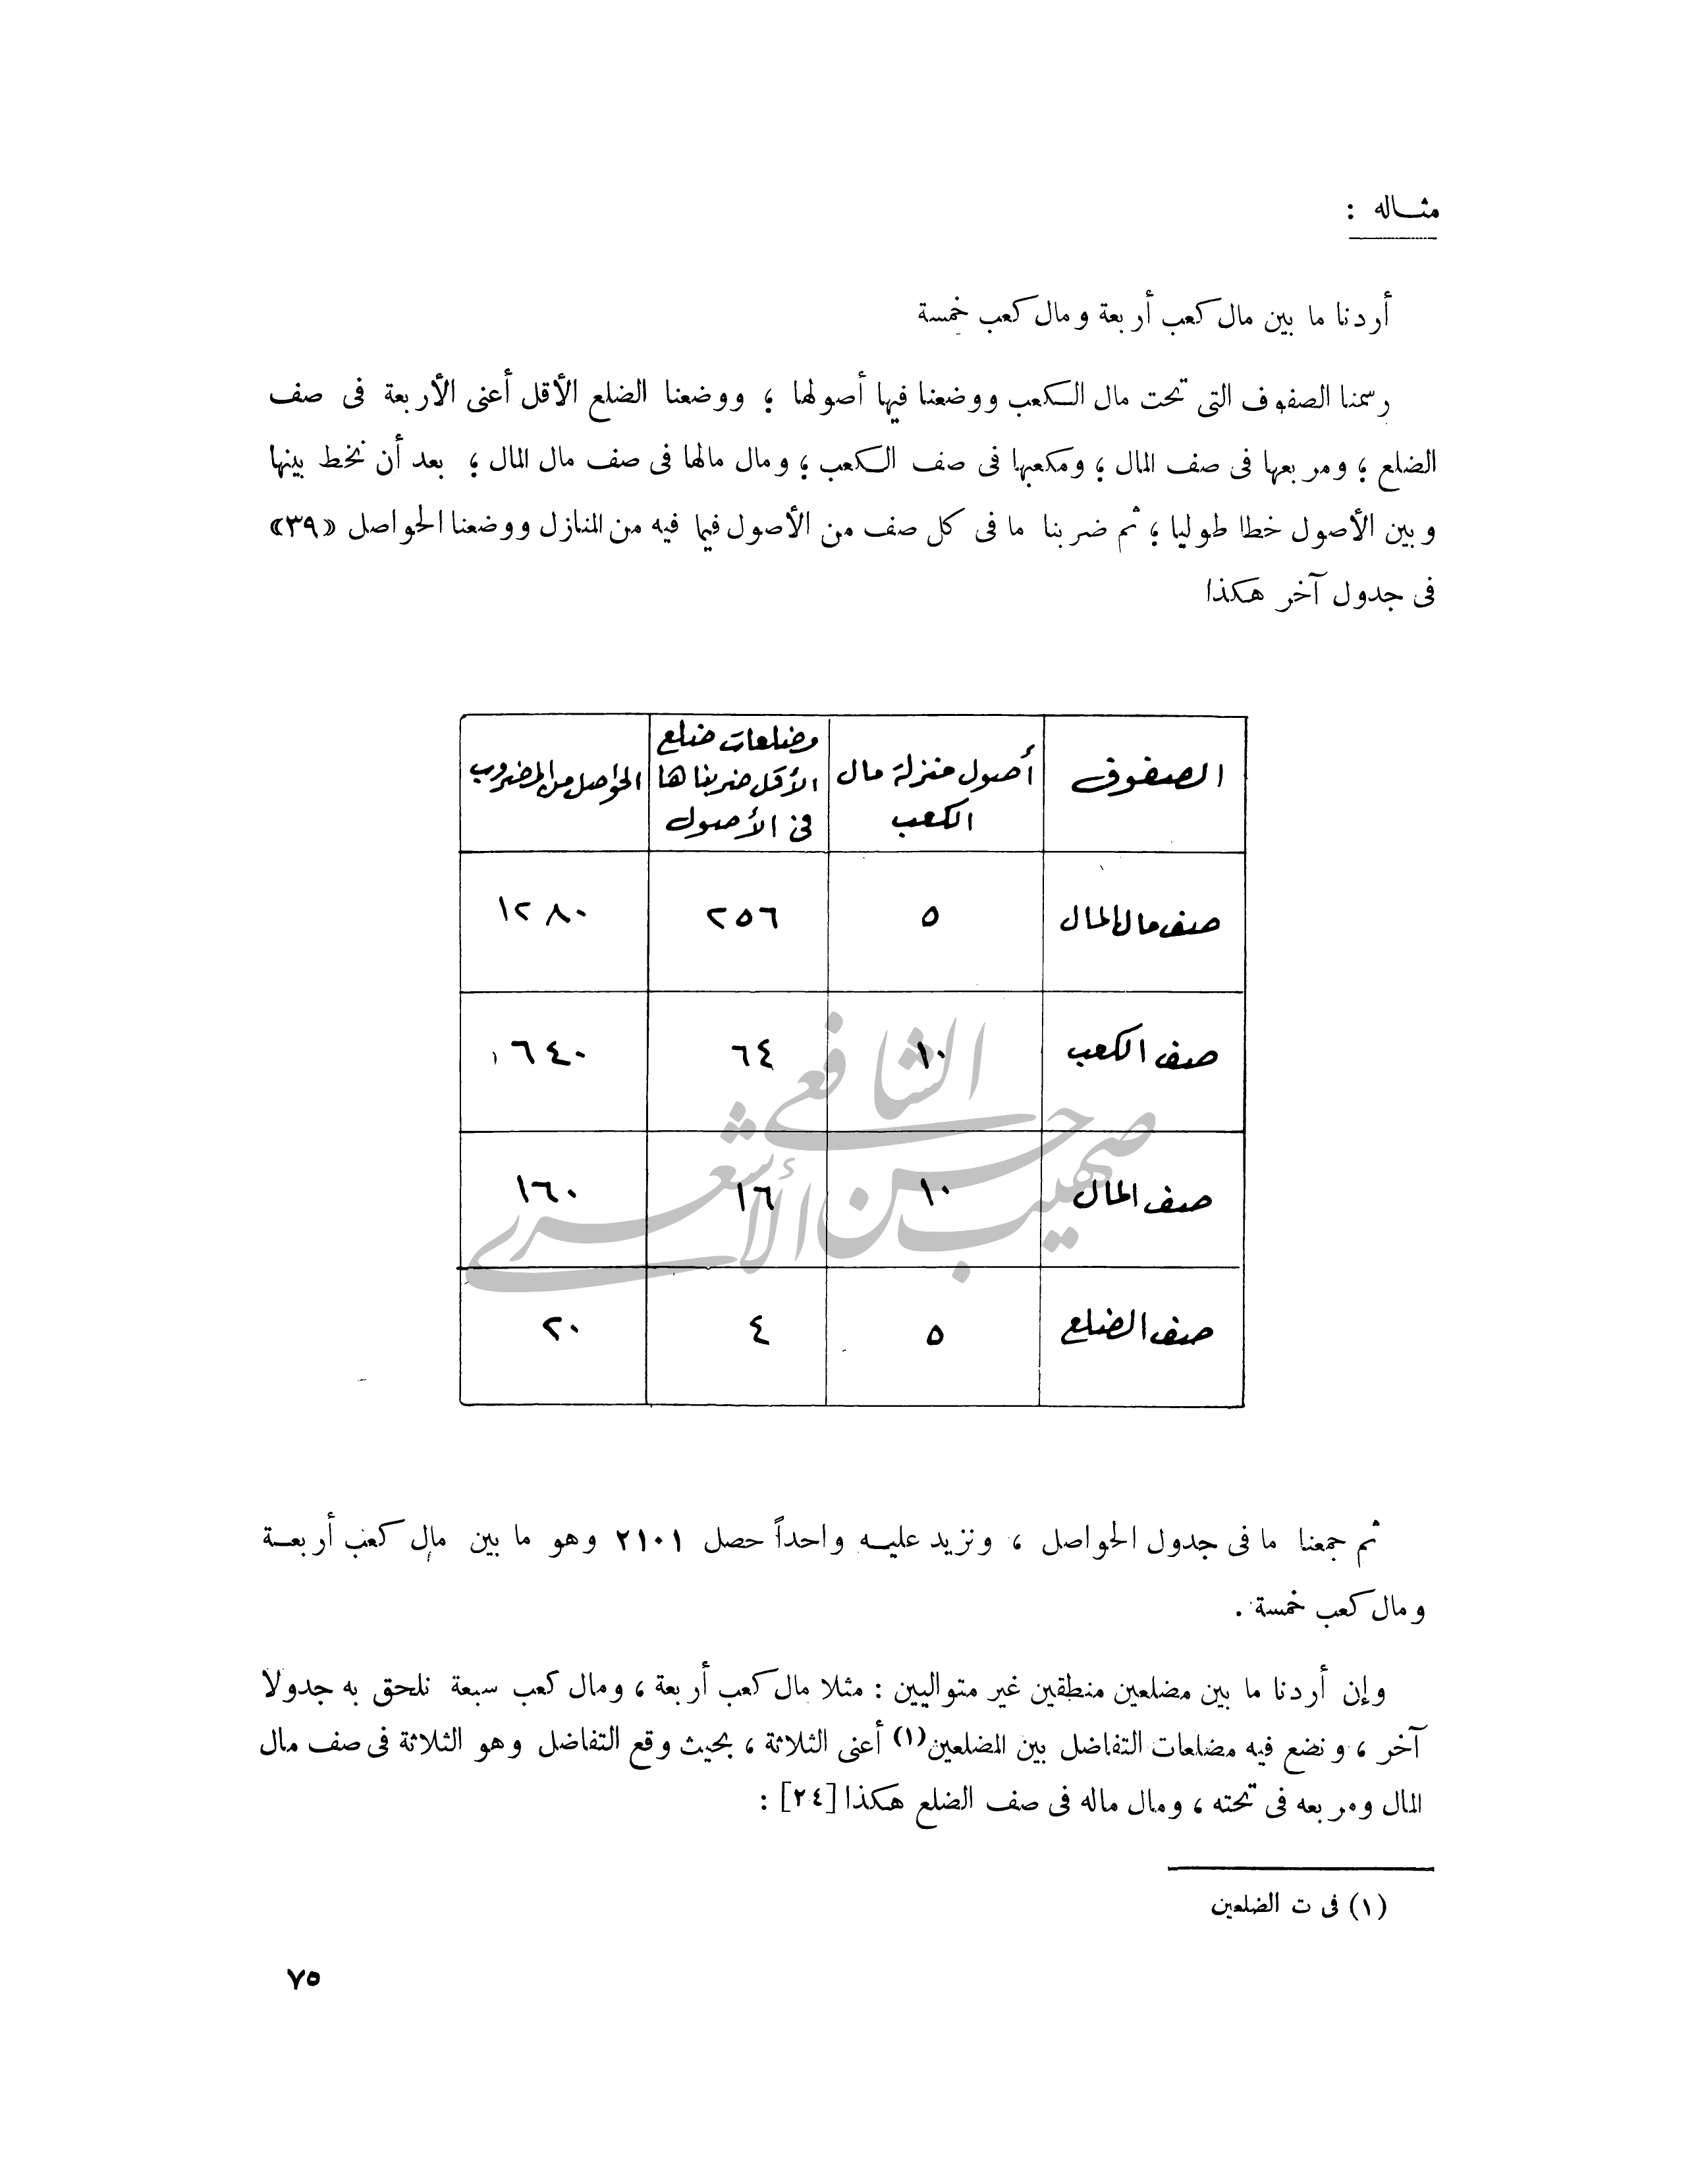 مثـاله :
أردنا ما بين مال كعب أربعة ومال كعب خمسة
رسمنا الصفوف التى تحت مال الكعب ووضعنا فيها أصولها ؛ ووضعنا الضلع الأقل أعنى الأربعة فى صف
الضلع ؛ ومربعها فى صف المال ؛ ومكعبها فى صف الكعب ؛ ومال مالها فى صف مال المال ؛ بعد أن نخط بينها
وبين الأصول خطا طوليا ؛ ثم ضربنا ما فى كل صف من الأصول فيما فيه من المنازل ووضعنا الحواصل «٣٩»
فى جدول آخر هكذا
الصفوف | أصول منزلة مال الكعب | مضلعات ضلع الأقل ضربناها فى الأصول | الحواصل من المضروب
صف مال المال | ٥ | ٢٥٦ | ١٢٨٠
صف الكعب | ١٠ | ٦٤ | ٦٤٠
صف المال | ١٠ | ١٦ | ١٦٠
صف الضلع | ٥ | ٤ | ٢٠
صهيب حسن الشافعي الأشعري
ثم جمعنا ما فى جدول الحواصل ، ونزيد عليـه واحداً حصل ٢١٠١ وهو ما بين مال كعب أربعـة
ومال كعب خمسة .
وإن أردنا ما بين مضلعين منطقين غير متواليين : مثلا مال كعب أربعة ، ومال كعب سبعة نلحق به جدولا
آخر ، ونضع فيه مضلعات التفاضل بين المضلعين(١) أعنى الثلاثة ، بحيث وقع التفاضل وهو الثلاثة فى صف مال
المال ومربعه فى تحته ، ومال ماله فى صف الضلع هكذا [٢٤] :
(١) فى ت الضلعين
٧٥